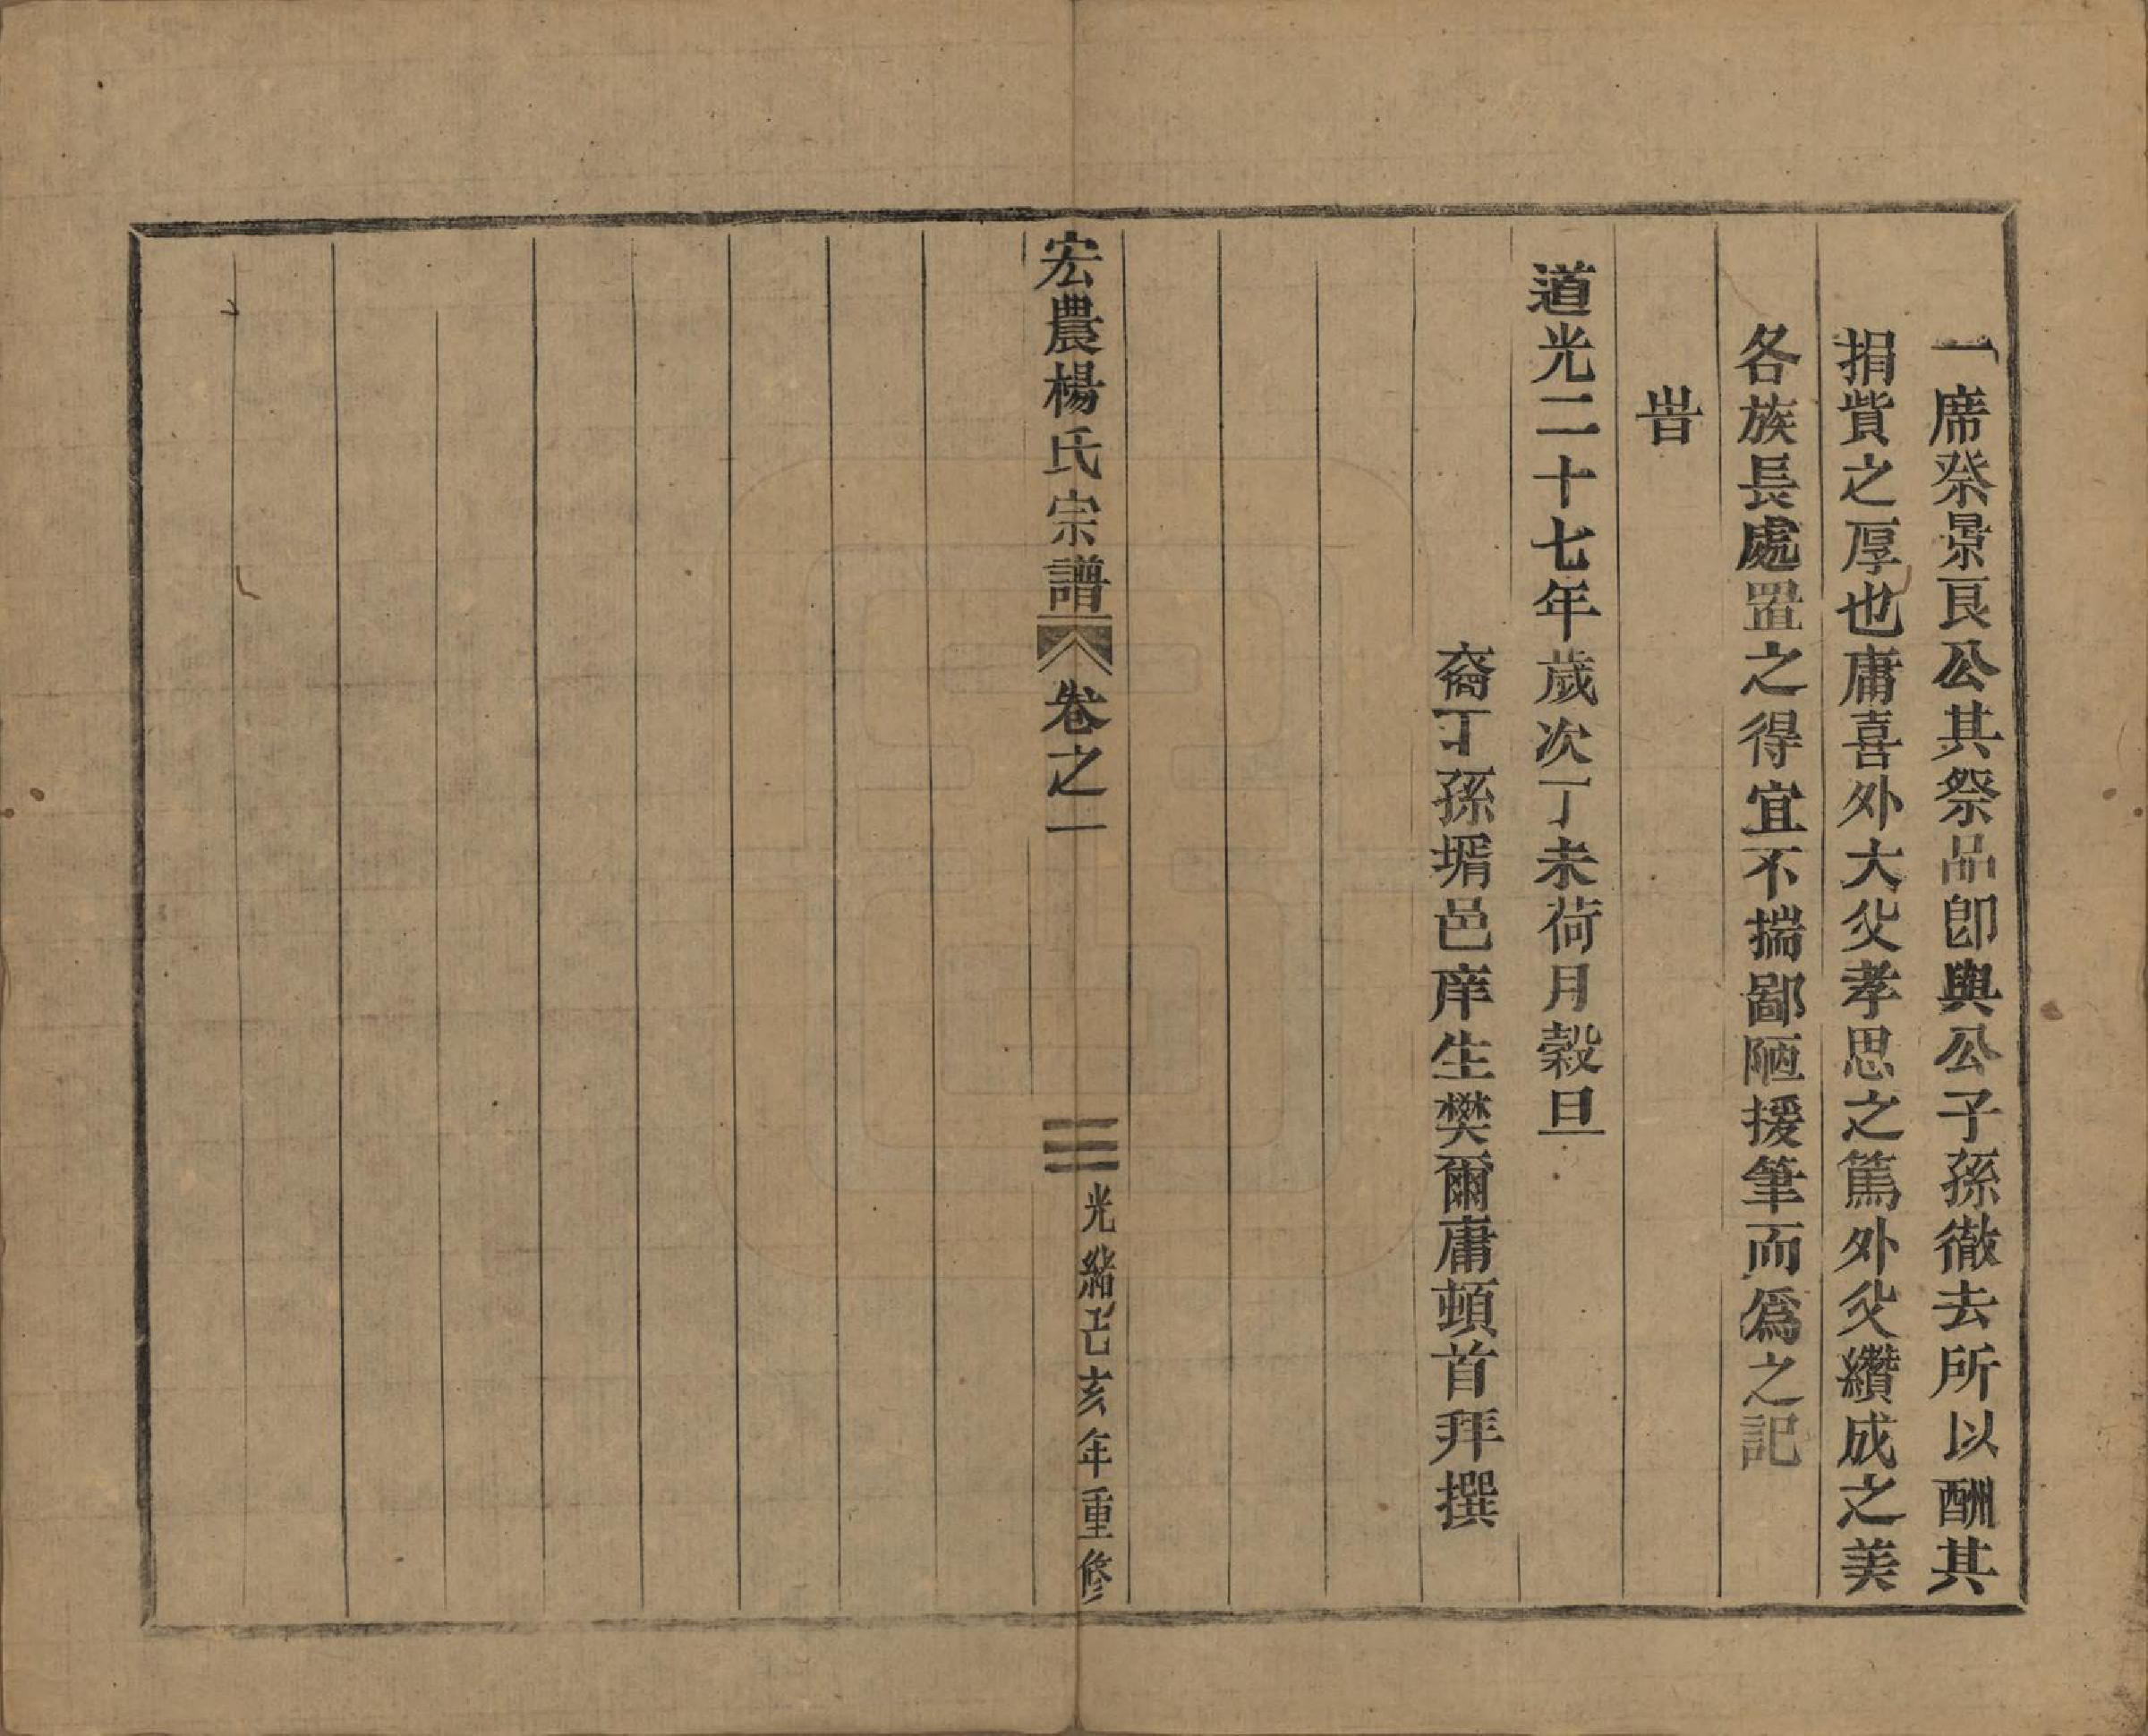 一席祭景良公其祭品卽與公子孫徹去所以酬其
捐貲之厚也庸喜外大父孝思之篤外父纘成之美
各族長處置之得宜不揣鄙陋援筆而爲之記
旹
道光二十七年歲次丁未荷月穀旦
裔孫壻邑庠生樊爾庸頓首拜撰
宏農楊氏宗譜
卷之一
三
光緒己亥年重修